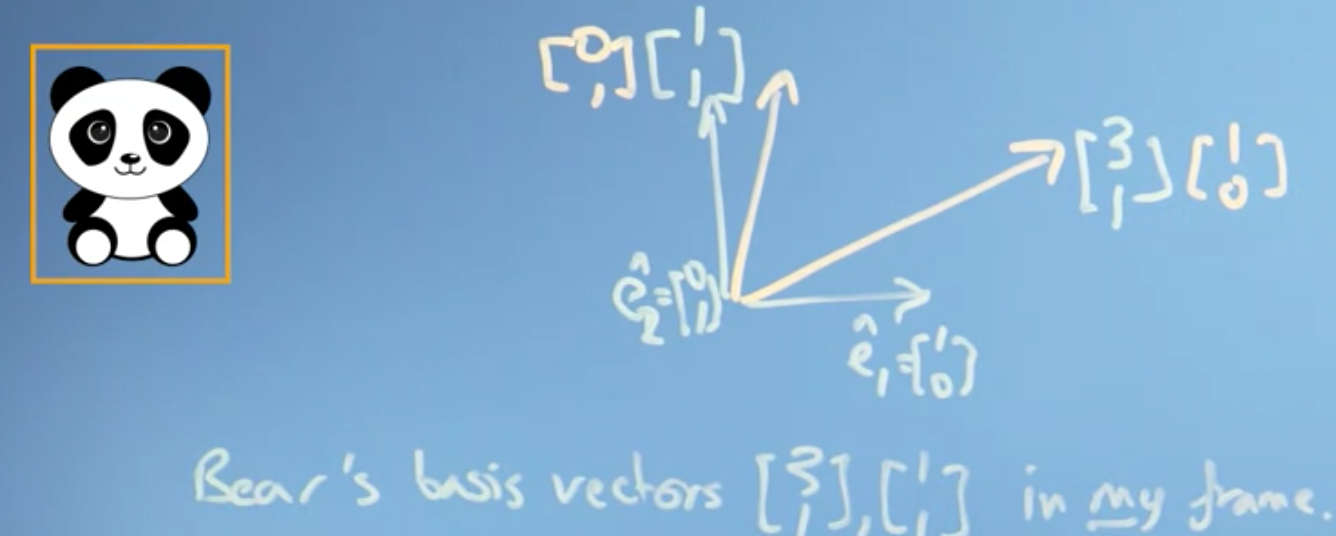 [0 1] [1 1]
[3 1] [1 0]
ê₂=[0 1]
ê₁=[1 0]
Bear's basis vectors [3 1],[1 1] in my frame.